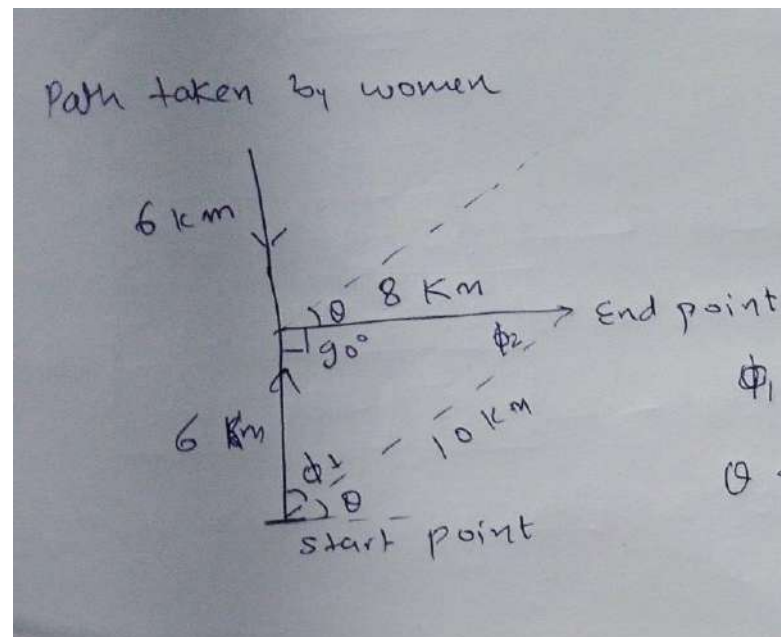 Path taken by women
6 km
θ 8 Km
End point
90°
ϕ2
ϕ1
6 Km
10 KM
ϕ1
θ
θ
start point